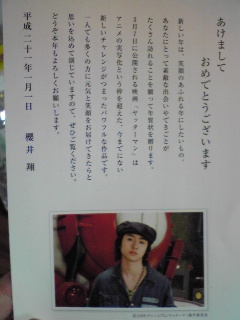 あけまして
おめでとうございます
新しい年は、笑顔のあふれる年にしたいもの。
あなたにとって素敵な出会いやできごとが
たくさん訪れることを願って年賀状を贈ります。
3月7日に公開される映画「ヤッターマン」は
アニメの実写化という枠を超えた、今までにない
新しいチャレンジがつまったパワフルな作品です。
一人でも多くの方に元気と笑顔をお届けできたらと
思いを込めて演じていますので、ぜひご覧ください。
どうぞ本年もよろしくお願いします。
平成二十一年一月一日 櫻井 翔